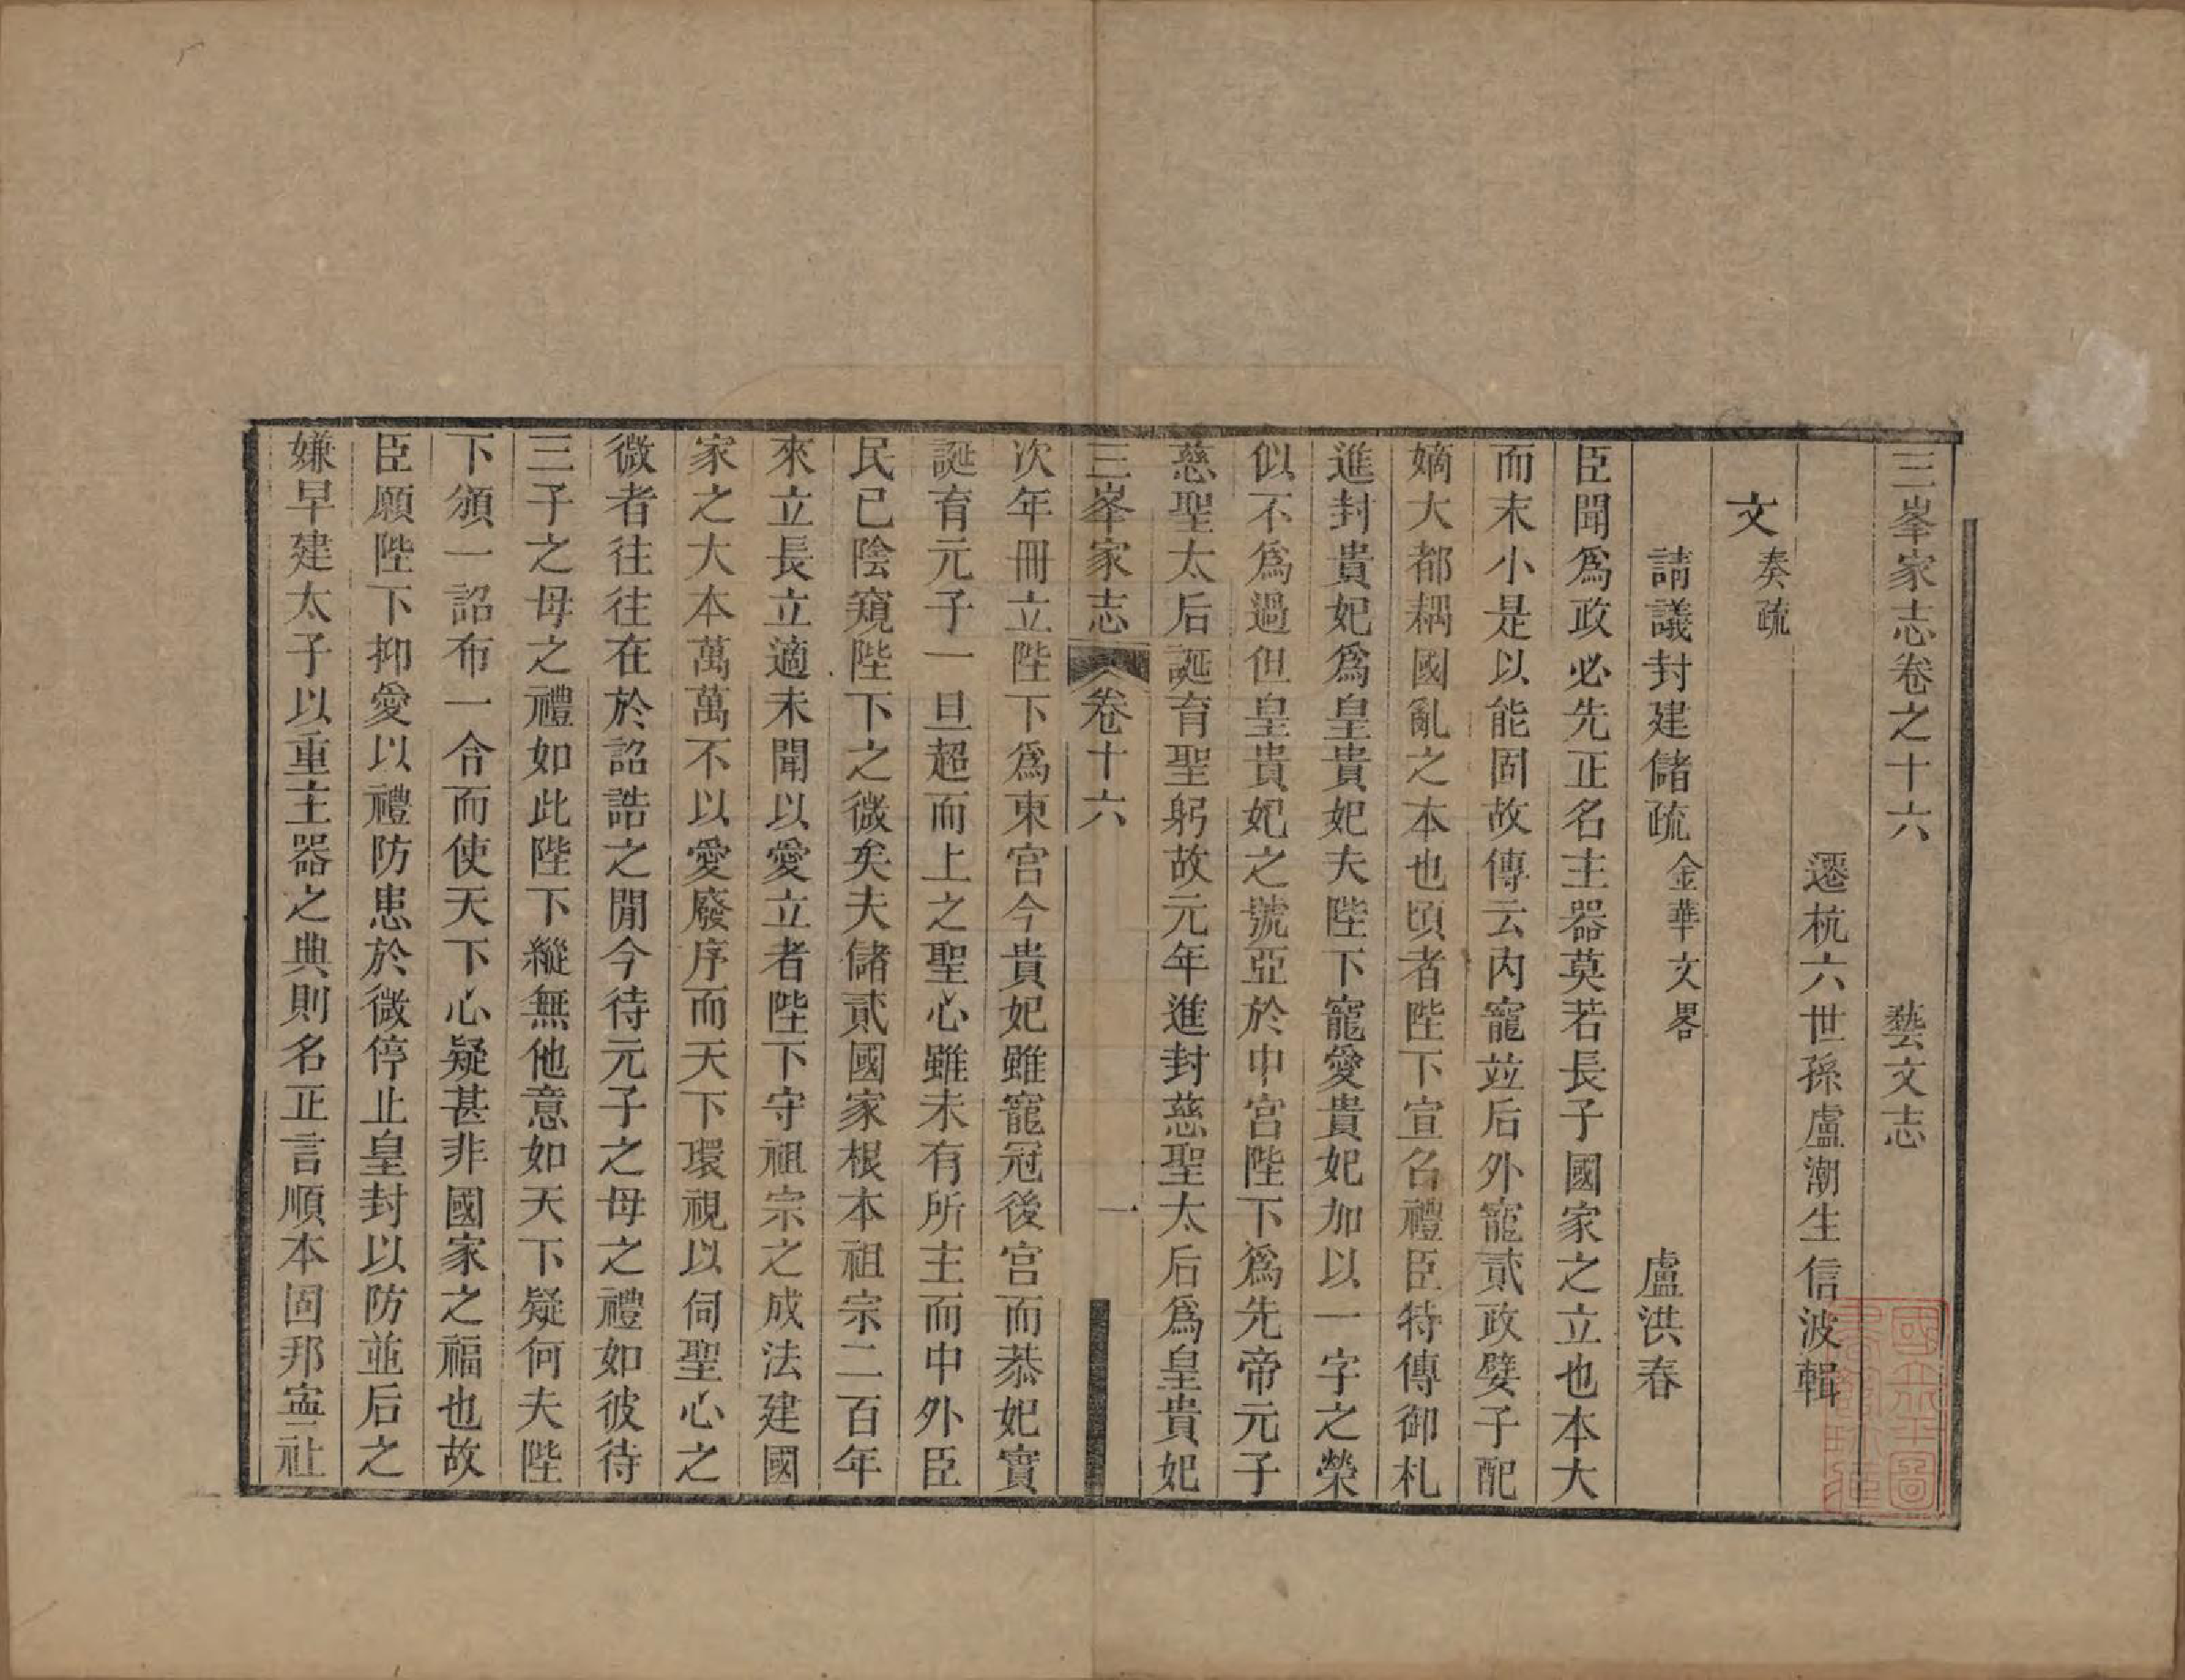 三峯家志卷之十六　藝文志
遷杭六世孫盧潮生信波輯
文奏疏
請議封建儲疏金華文畧　盧洪春
臣聞爲政必先正名主器莫若長子國家之立也本大
而末小是以能固故傳云內寵竝后外寵貳政嬖子配
嫡大都耦國亂之本也頃者陛下宣召禮臣特傳御札
進封貴妃爲皇貴妃夫陛下寵愛貴妃加以一字之榮
似不爲過但皇貴妃之號亞於中宮陛下爲先帝元子
慈聖太后誕育聖躬故元年進封慈聖太后爲皇貴妃
三峯家志　卷十六　一
次年冊立陛下爲東宮今貴妃雖寵冠後宮而恭妃實
誕育元子一旦超而上之聖心雖未有所主而中外臣
民已陰窺陛下之微矣夫儲貳國家根本祖宗二百年
來立長立適未聞以愛立者陛下守祖宗之成法建國
家之大本萬萬不以愛廢序而天下環視以伺聖心之
微者往往在於詔誥之閒今待元子之母之禮如彼待
三子之母之禮如此陛下縱無他意如天下疑何夫陛
下頒一詔布一令而使天下心疑甚非國家之福也故
臣願陛下抑愛以禮防患於微停止皇封以防並后之
嫌早建太子以重主器之典則名正言順本固邦寍社